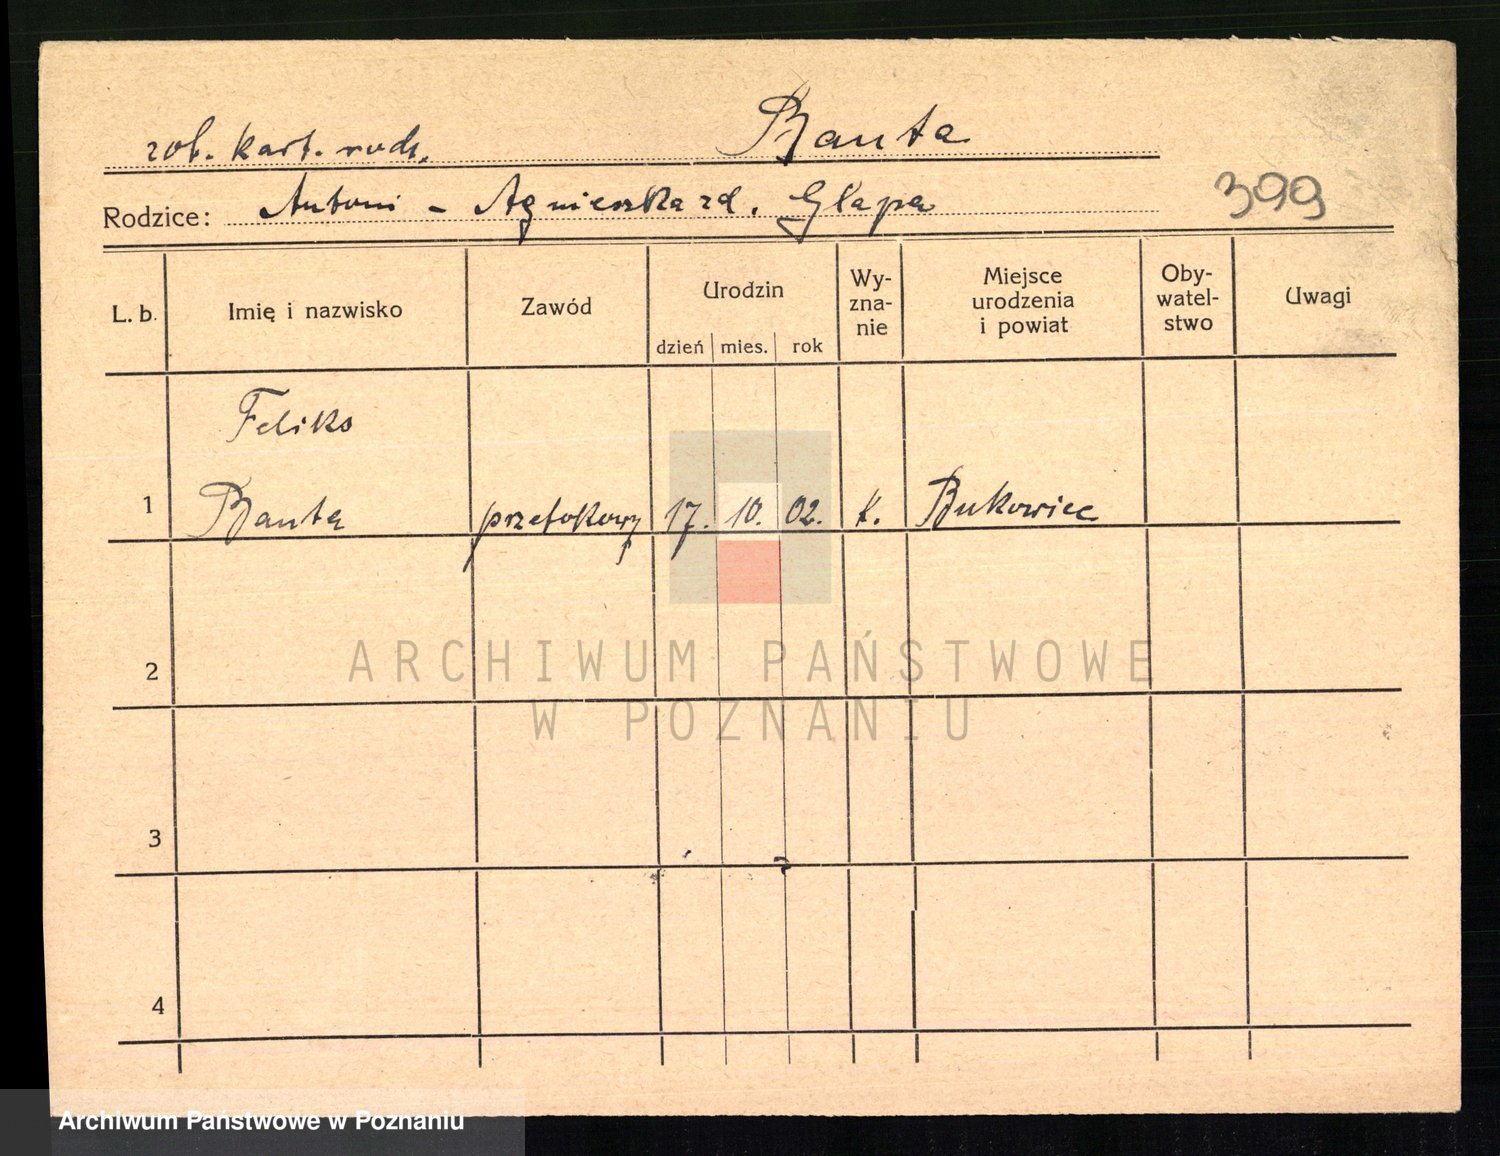 zob. kart. rodz. Banta
Rodzice: Antoni - Agnieszka zd. Glapa
399
L. b. Imię i nazwisko Zawód Urodzin dzień mies. rok Wyznanie Miejsce urodzenia i powiat Obywatelstwo Uwagi
Feliks
1 Banta przetokowy 17. 10. 02. k. Bukowiec
2
ARCHIWUM PAŃSTWOWE
W POZNANIU
3
4
Archiwum Państwowe w Poznaniu